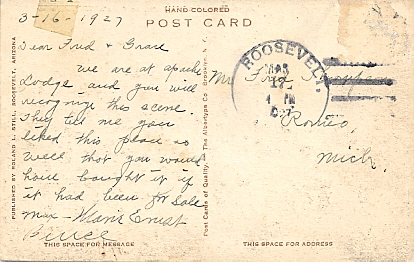 HAND-COLORED
POST CARD
3-16-1927
Dear Fred & Grace
we are at apache
Lodge and you will
recognize this scene.
They tell me you
liked this place so
well that you would
have bought it if
it had been for sale
max - Marie Ernest
Bruce
THIS SPACE FOR MESSAGE
PUBLISHED BY LELAND I. STILL, ROOSEVELT, ARIZONA
Post Cards of Quality. The Albertype Co., Brooklyn, N. Y.
ROOSEVELT,
MAR
17
PM
Mr Fred
Romeo,
Mich.
THIS SPACE FOR ADDRESS